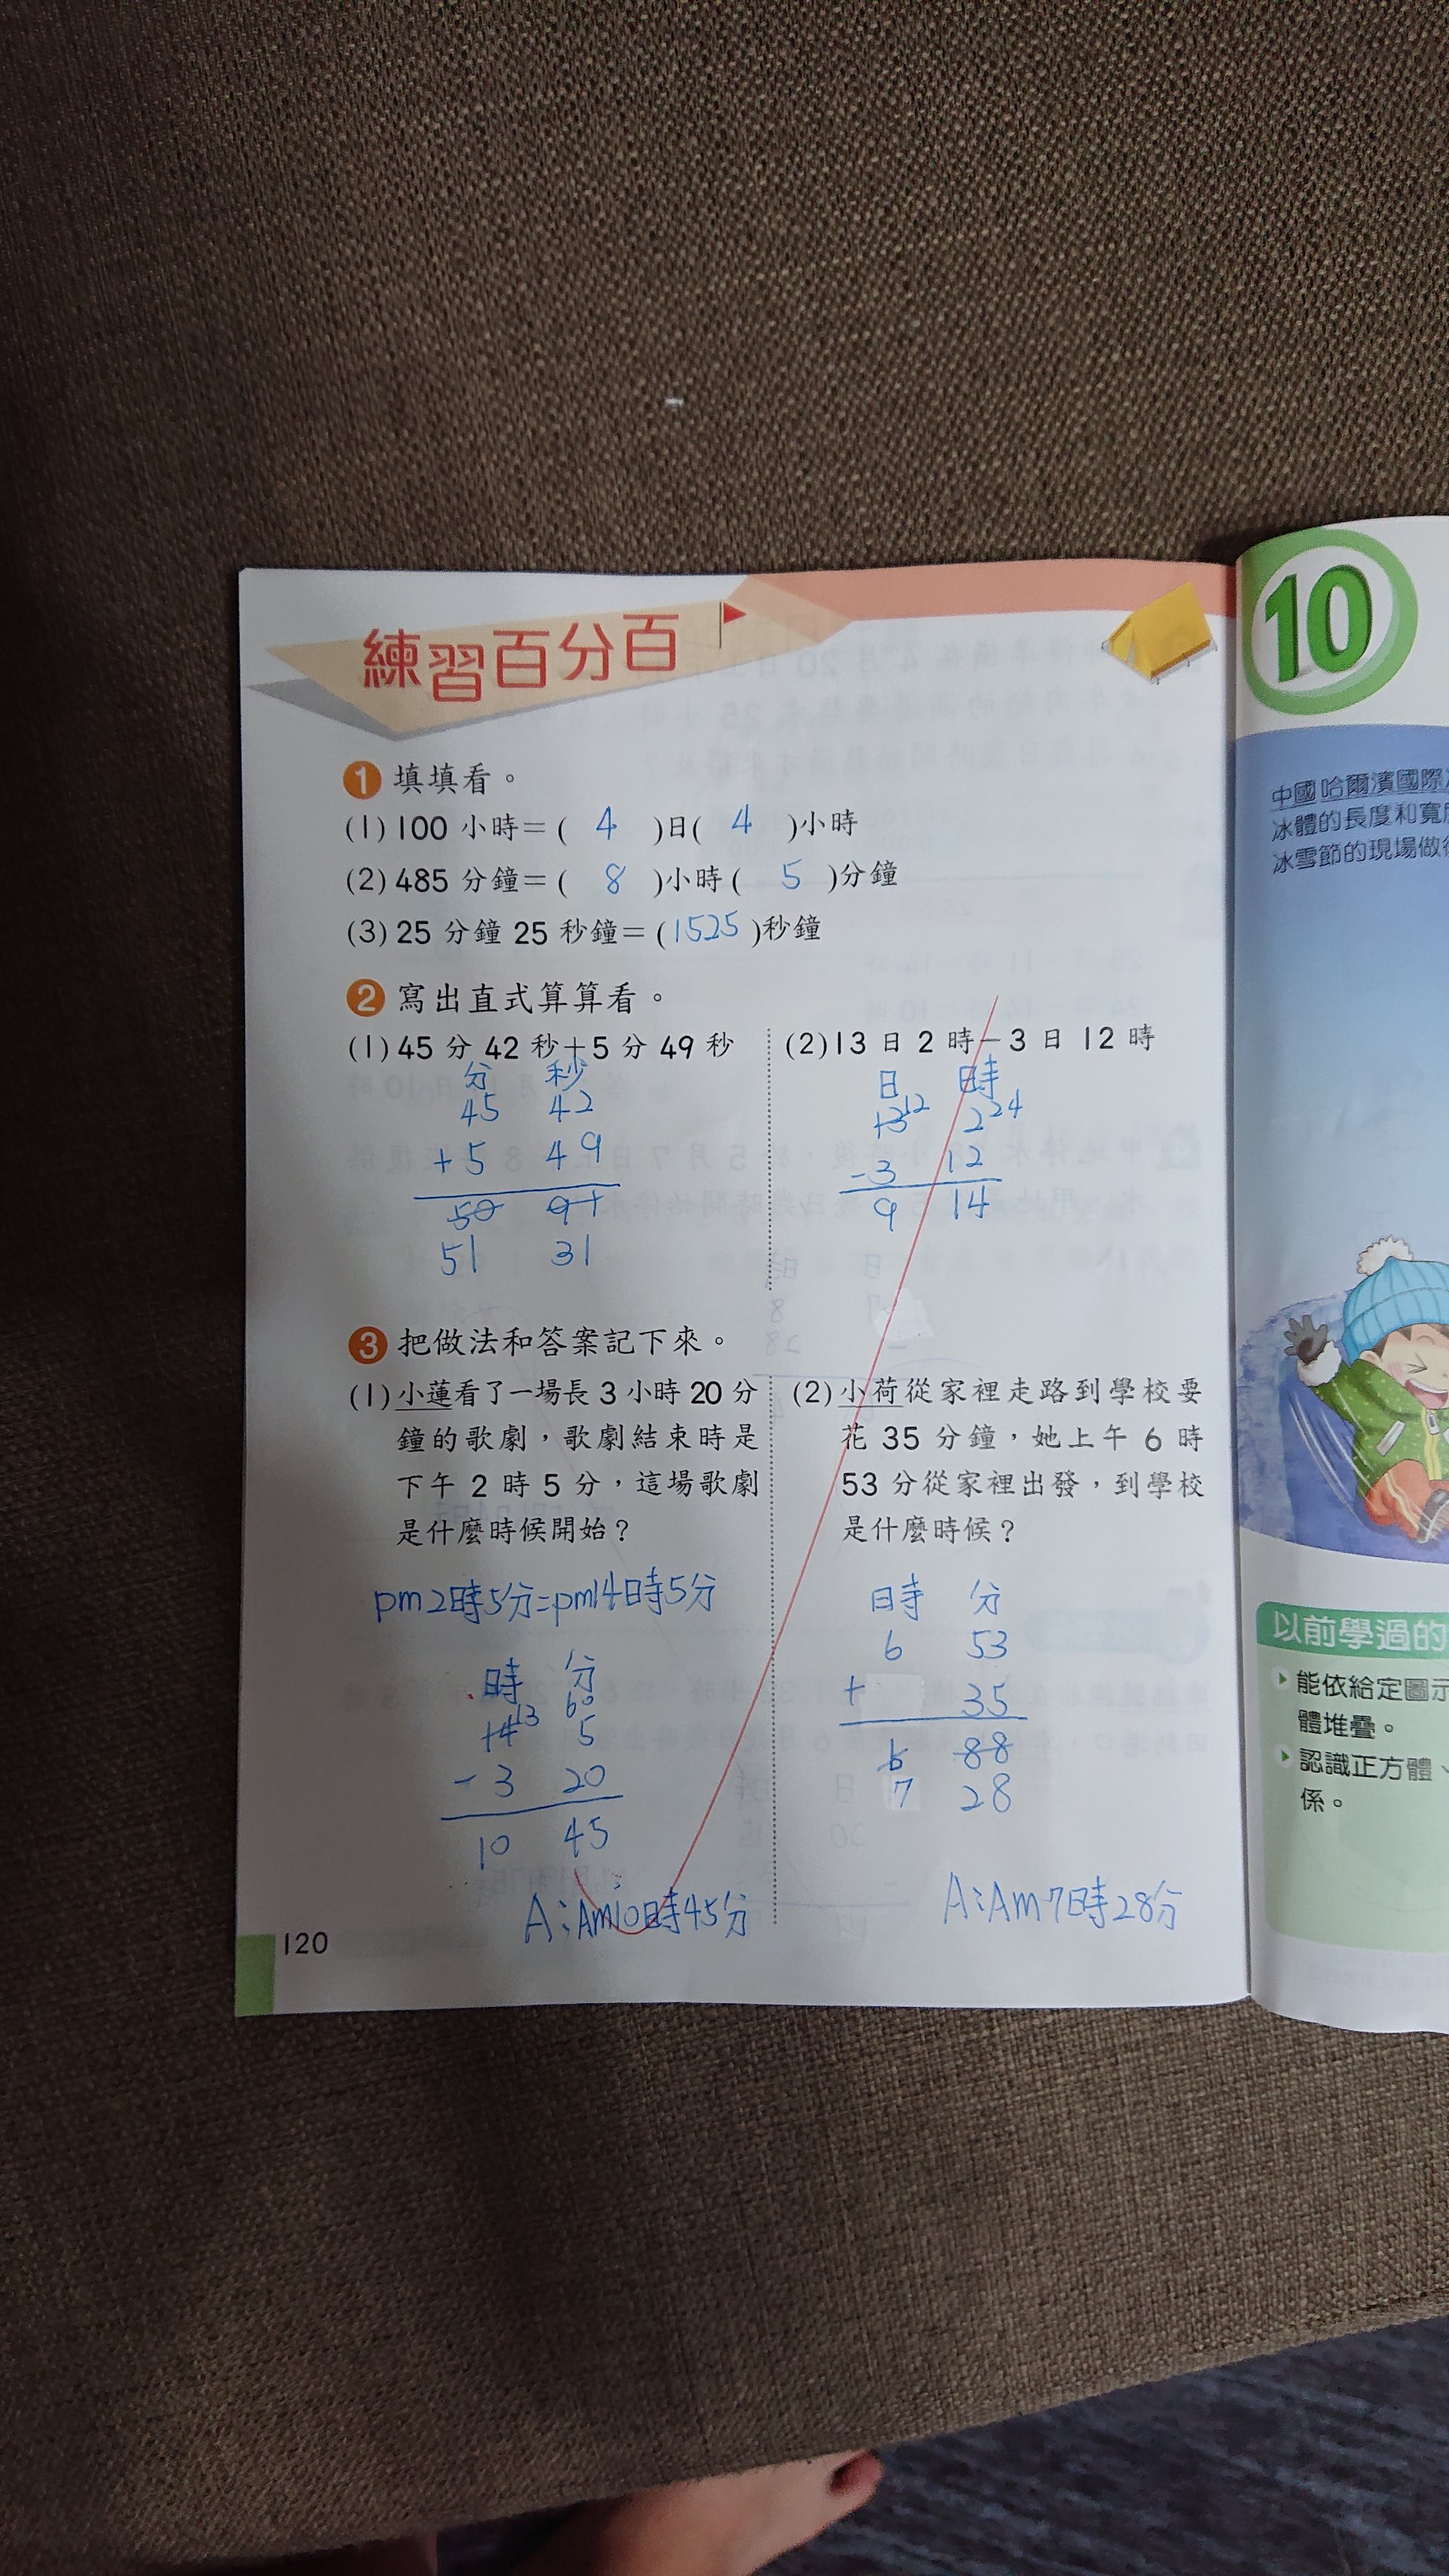 練習百分百
1 填填看。
(1) 100 小時=( 4 )日( 4 )小時
(2) 485 分鐘=( 8 )小時( 5 )分鐘
(3) 25 分鐘 25 秒鐘=(1525)秒鐘
2 寫出直式算算看。
(1) 45 分 42 秒+5 分 49 秒
分 秒
45 42
+5 49
50 91
51 31
(2) 13 日 2 時-3 日 12 時
日 時
13 12 2 24
-3 12
9 14
3 把做法和答案記下來。
(1) 小蓮看了一場長 3 小時 20 分
鐘的歌劇,歌劇結束時是
下午 2 時 5 分,這場歌劇
是什麼時候開始?
pm2時5分=pm14時5分
時 分
13 60
14 5
-3 20
10 45
A:Am10時45分
(2) 小荷從家裡走路到學校要
花 35 分鐘,她上午 6 時
53 分從家裡出發,到學校
是什麼時候?
時 分
6 53
+ 35
6 88
7 28
A:Am7時28分
120
10
中國哈爾濱國際
冰體的長度和寬
冰雪節的現場做
以前學過的
能依給定圖示
體堆疊。
認識正方體、
係。